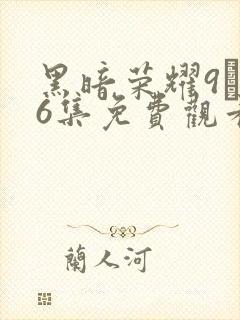 黑暗荣耀9
6集免費觀看
蘭人河